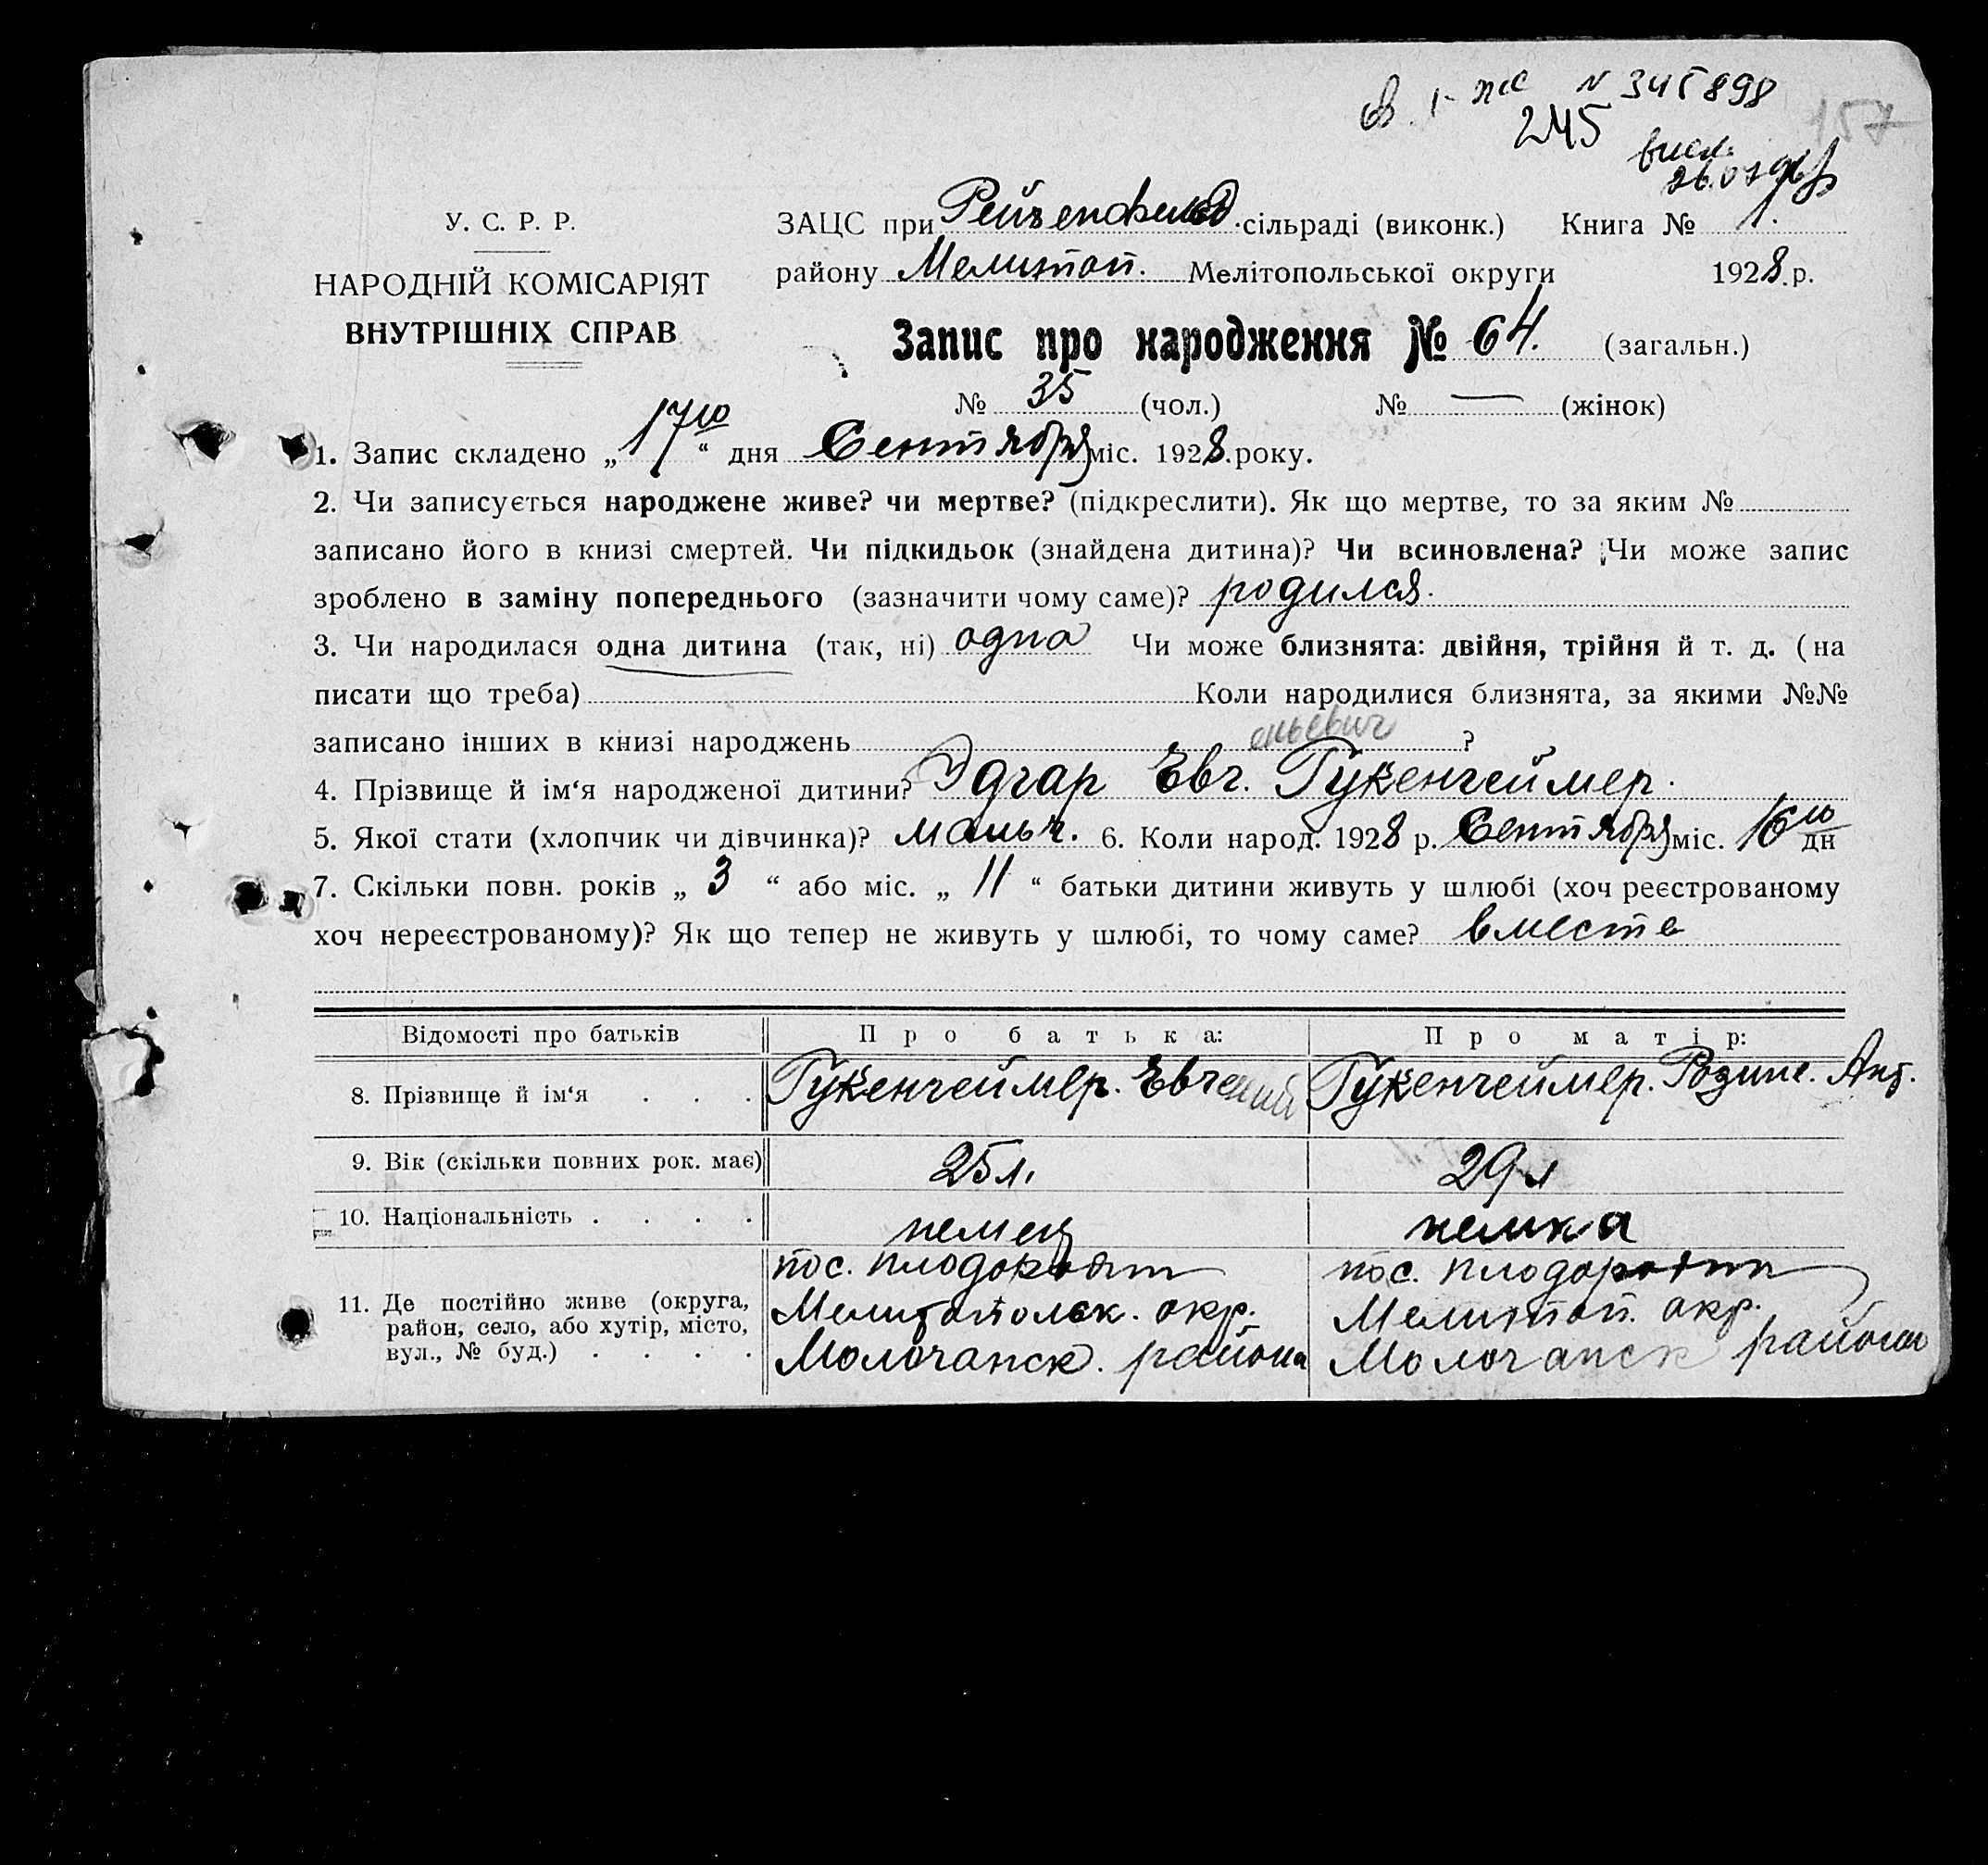 N 345898
245
157
У. С. Р. Р.
НАРОДНІЙ КОМІСАРІЯТ
ВНУТРІШНІХ СПРАВ
ЗАЦС при Рейхенфельд сільраді (виконк.) Книга № 1.
району Мелитоп. Мелітопольської округи 1928 р.
Запис про народження № 64. (загальн.)
№ 35 (чол.) № — (жінок)
1. Запис складено „17го“ дня Сентября міс. 1928 року.
2. Чи записується народжене живе? чи мертве? (підкреслити). Як що мертве, то за яким №
записано його в книзі смертей. Чи підкидьок (знайдена дитина)? Чи всиновлена? Чи може запис
зроблено в заміну попереднього (зазначити чому саме)? родился.
3. Чи народилася одна дитина (так, ні) одна Чи може близнята: двійня, трійня й т. д. (на
писати що треба) Коли народилися близнята, за якими №№
записано інших в книзі народжень ?
еньевич
4. Прізвище й ім‘я народженої дитини? Эдгар Евг. Гукенгеймер.
5. Якої стати (хлопчик чи дівчинка)? мальч. 6. Коли народ. 1928 р. Сентября міс. 16го дн
7. Скільки повн. років „ 3 “ або міс. „ 11 “ батьки дитини живуть у шлюбі (хоч реєстрованому
хоч нереєстрованому)? Як що тепер не живуть у шлюбі, то чому саме? вместе
Відомості про батьків Про батька: Про матір:
8. Прізвище й ім‘я . . . Гукенгеймер. Евгений Гукенгеймер. Розине. Ант.
9. Вік (скільки повних рок. має) 25 л. 29 л
10. Національність . . . . немец немка
11. Де постійно живе (округа,
район, село, або хутір, місто,
вул., № буд.) . . . .
пос. Плодородит
Мелитопольск. окр.
Молочанск. района
пос. Плодородит
Мелитоп. окр.
Молочанск района